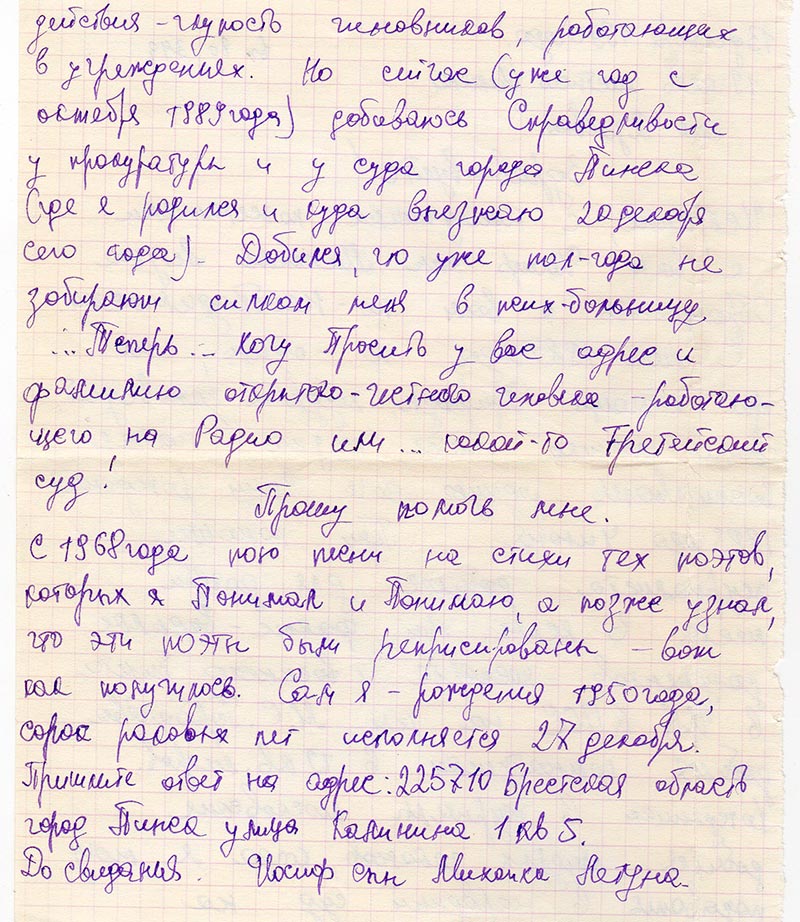 действия - глупость чиновников, работающих
в учреждениях. Но сейчас (уже год с
октября 1989 года) добиваюсь Справедливости
у прокуратуры и у суда города Пинска
(где я родился и куда выезжаю 20 декабря
сего года). Добился, что уже пол-года не
забирают силком меня в псих-больницу.
...Теперь... хочу Просить у вас адрес и
фамилию открыто-честного человека - работаю-
щего на Радио или... какой-то Третейский
суд!
Прошу помочь мне.
С 1968 года пою песни на стихи тех поэтов,
которых я Понимал и Понимаю, а позже узнал,
что эти поэты были реприсированы - вот
как получилось. Сам я - рождения 1950 года,
сорок роковых лет исполняется 27 декабря.
Пришлите ответ на адрес: 225710 Брестская область
город Пинск улица Калинина 1 кв 5.
До свидания. Иосиф сын Михаила